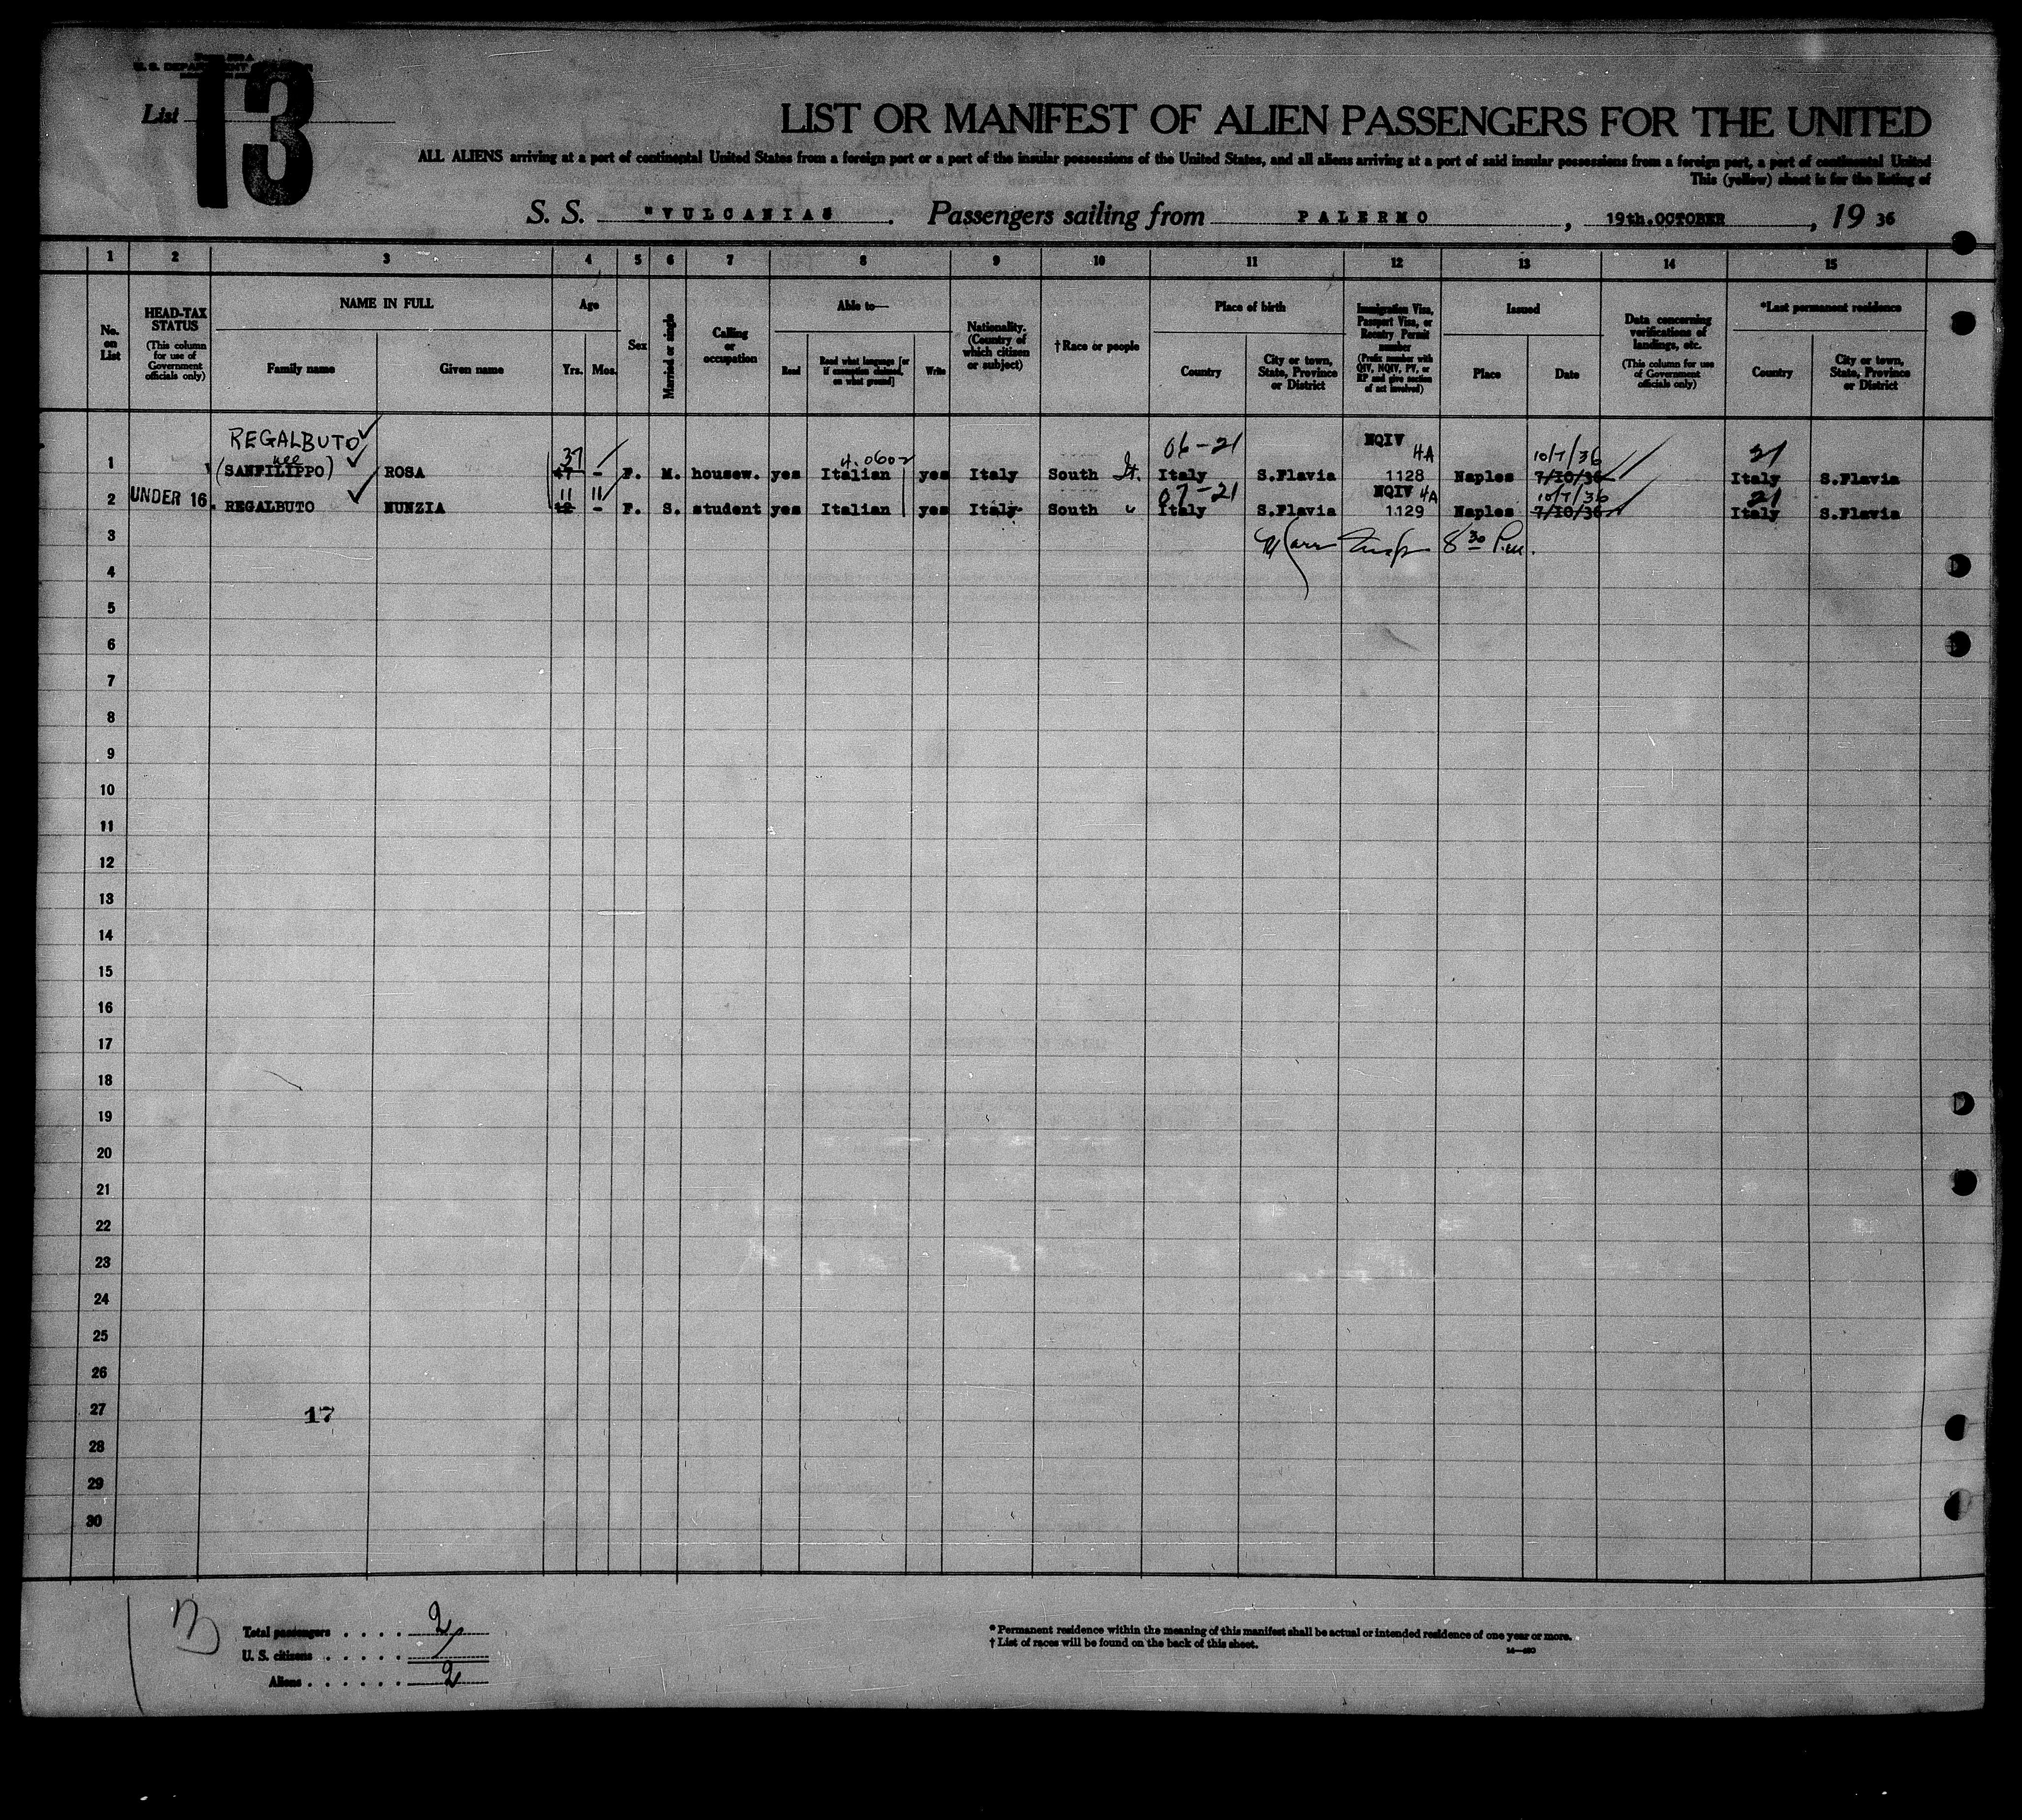 Form 500 A
U. S. DEPARTMENT
List 13
LIST OR MANIFEST OF ALIEN PASSENGERS FOR THE UNITED
ALL ALIENS arriving at a port of continental United States from a foreign port or a port of the insular possessions of the United States, and all aliens arriving at a port of said insular possessions from a foreign port, a port of continental United
This (yellow) sheet is for the listing of
S. S. "VULCANIA" . Passengers sailing from PALERMO , 19th.OCTOBER , 19 36
1 2 3 4 5 6 7 8 9 10 11 12 13 14 15
No. on List
HEAD-TAX STATUS (This column for use of Government officials only)
NAME IN FULL
Family name
Given name
Age
Yrs. Mos.
Sex
Married or single
Calling or occupation
Able to—
Read
Read what language [or if exemption claimed, on what ground]
Write
Nationality. (Country of which citizen or subject)
† Race or people
Place of birth
Country
City or town, State, Province or District
Immigration Visa, Passport Visa, or Reentry Permit number (Prefix number with QIV, NQIV, PV, or RP and give section of act involved)
Issued
Place
Date
Data concerning verifications of landings, etc. (This column for use of Government officials only)
*Last permanent residence
Country
City or town, State, Province or District
REGALBUTO 06-21 NQIV 4A
nee 37 4.0602 10/7/36 21
1 (SANFILIPPO) ROSA 47 - F. M. housew. yes Italian yes Italy South It. Italy S.Flavia 1128 Naples 7/10/36 Italy S.Flavia
11 11 07-21 NQIV 4A 10/7/36 21
2 UNDER 16. REGALBUTO NUNZIA 12 - F. S. student yes Italian yes Italy South " Italy S.Flavia 1129 Naples 7/10/36 Italy S.Flavia
3 8 30 P.m.
4
5
6
7
8
9
10
11
12
13
14
15
16
17
18
19
20
21
22
23
24
25
26
27 17
28
29
30
Total passengers . . . . 2
U. S. citizens . . . . .
Aliens . . . . . . 2
* Permanent residence within the meaning of this manifest shall be actual or intended residence of one year or more.
† List of races will be found on the back of this sheet.